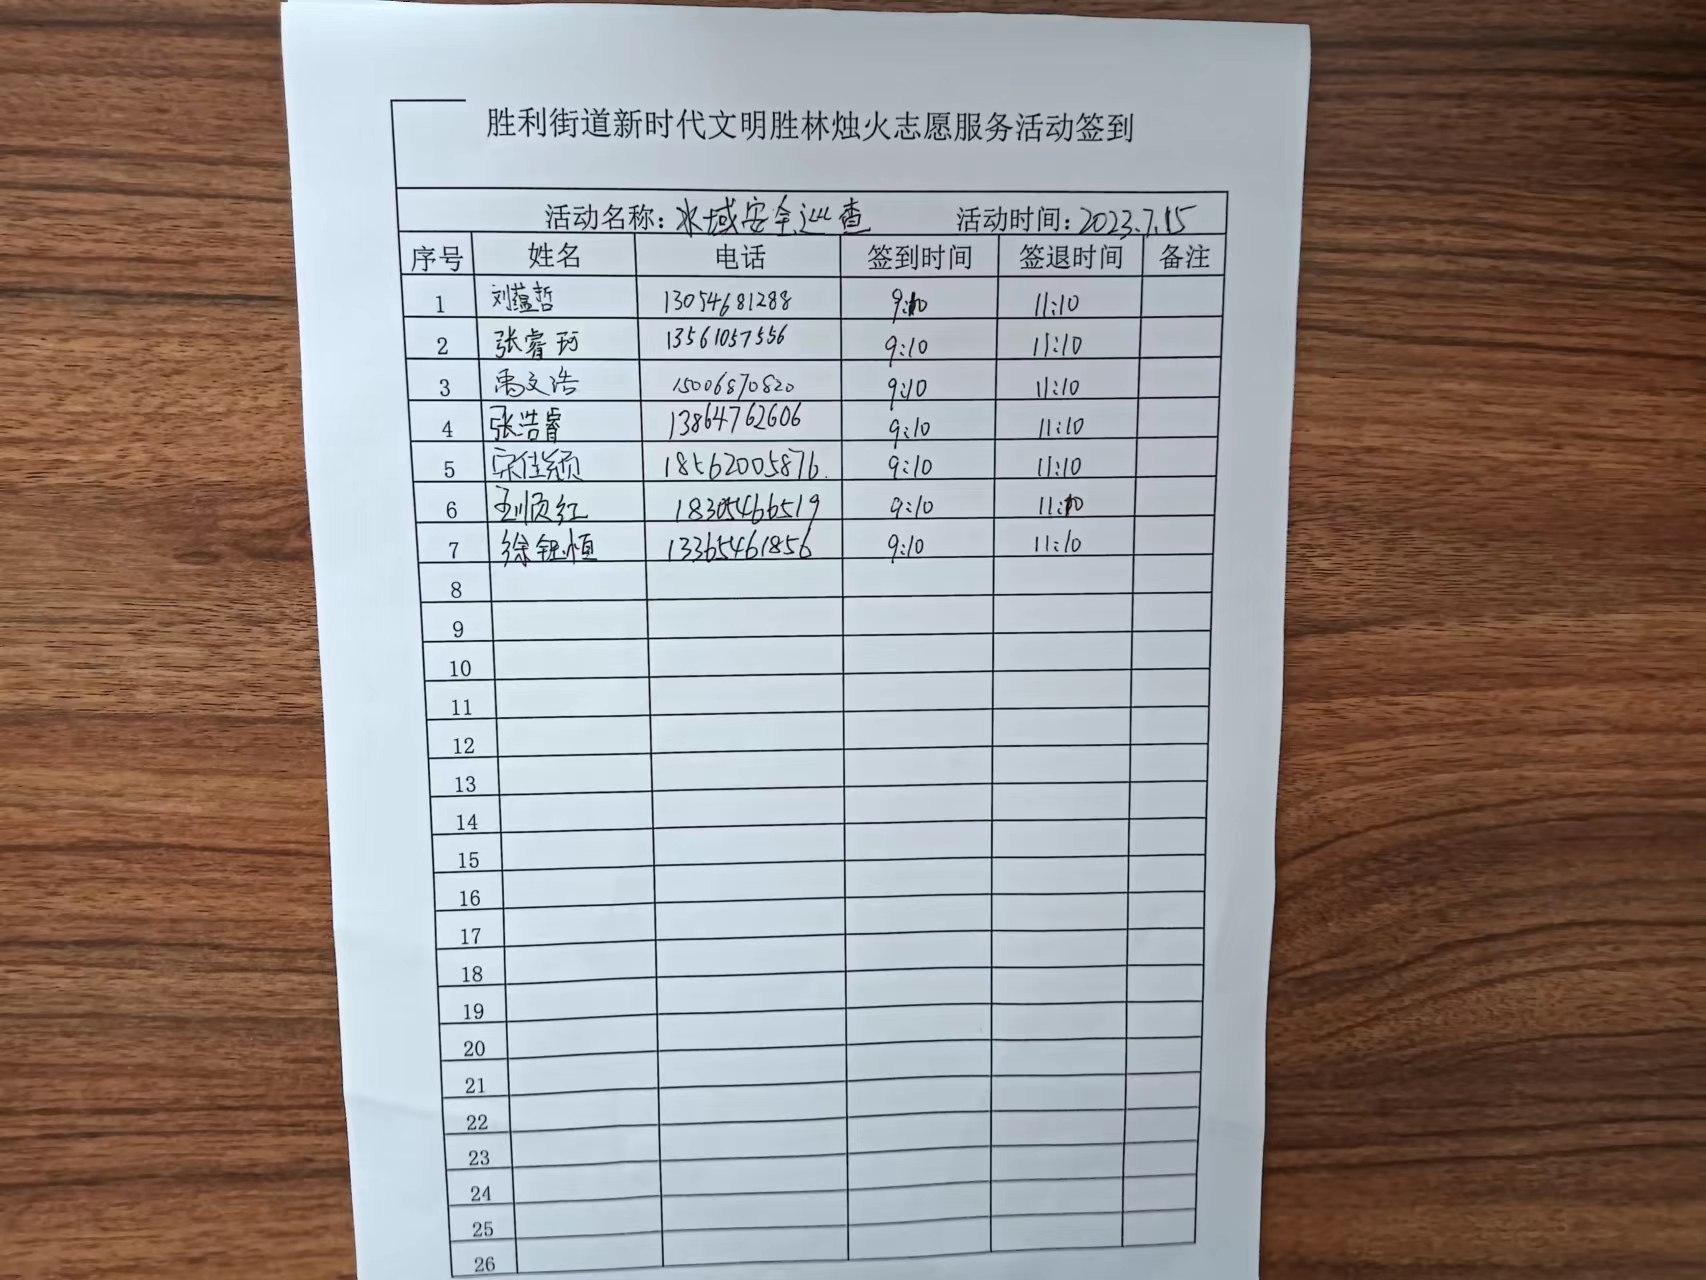 胜利街道新时代文明胜林烛火志愿服务活动签到
活动名称：水域安全巡查 活动时间：2023.7.15
序号 姓名 电话 签到时间 签退时间 备注
1 刘蕴哲 13054681288 9:10 11:10
2 张睿珂 13561057556 9:10 11:10
3 禹文浩 15006870820 9:10 11:10
4 张浩睿 13864762606 9:10 11:10
5 宋佳颖 18562005876. 9:10 11:10
6 王顺红 18305466519 9:10 11:10
7 徐钰恒 13365461856 9:10 11:10
8
9
10
11
12
13
14
15
16
17
18
19
20
21
22
23
24
25
26